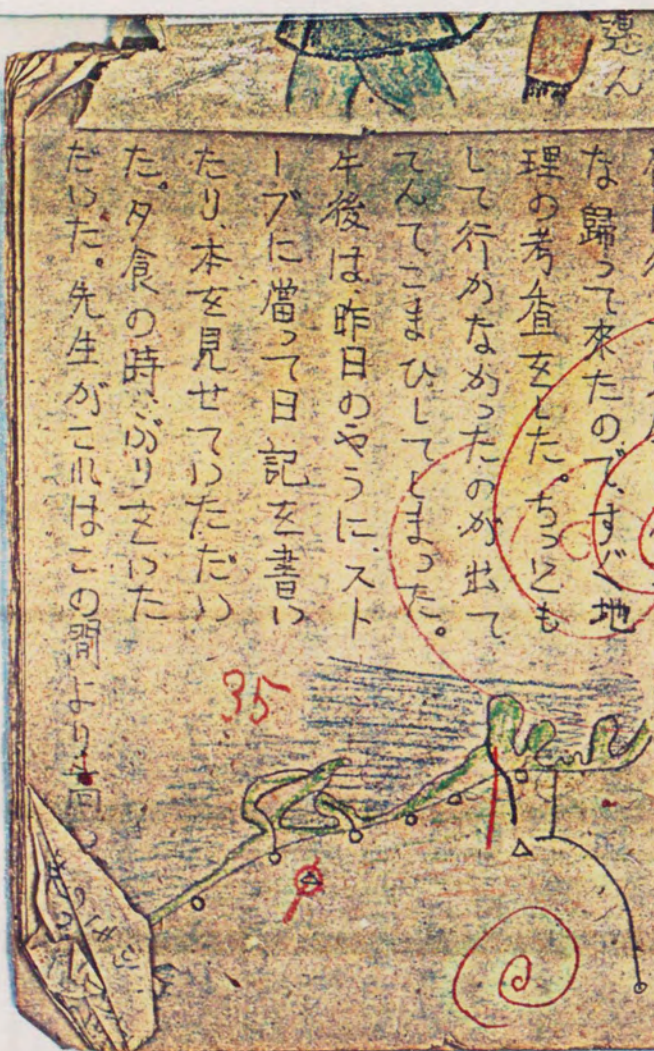 遠ん
な歸って來たので、すぐ地
理の考査をした。ちっとも
して行かなかったのが出て
てんてこまひしてしまった。
午後は、昨日のやうに、スト
ーブに當って日記を書い
たり、本を見せていただい
た。夕食の時、ぶりをいた
だいた。先生がこれはこの間より
35